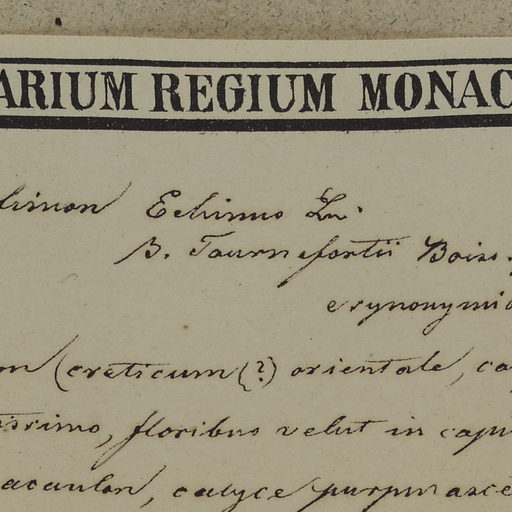 ARIUM REGIUM MONAC
limon Echinus Lin.
β. Tournefortii Boiss.
e synonymi
m (creticum (?) orientale, ca
issimo, floribus velut in capi
acaulon, calyce purpurasce